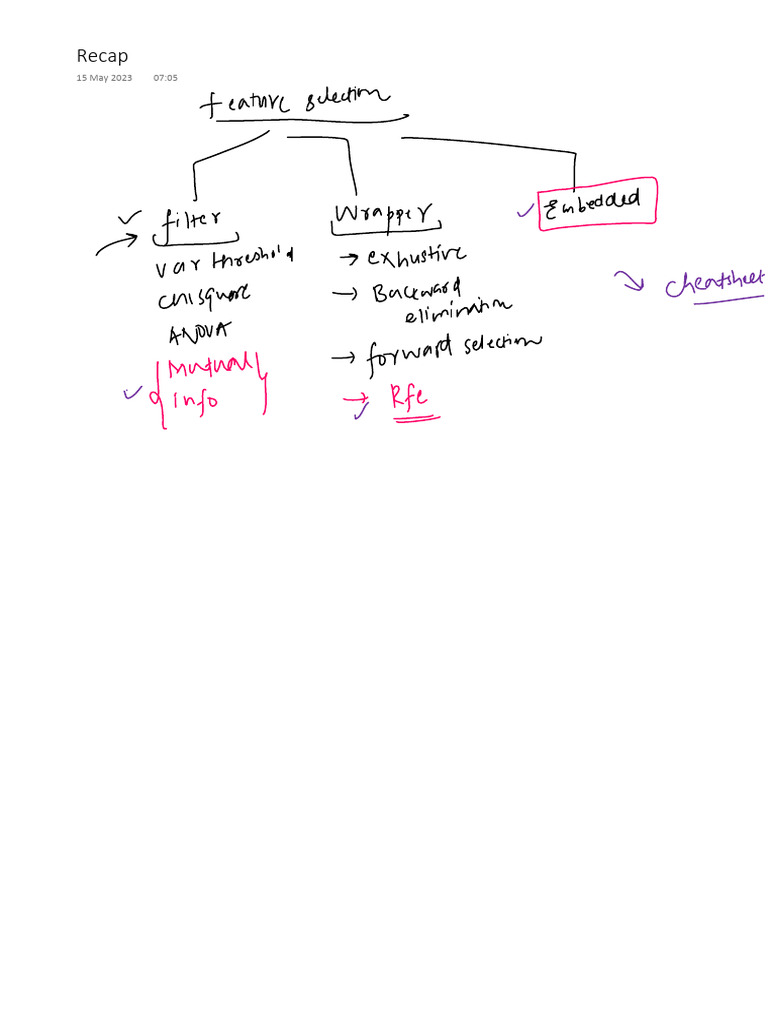 Recap
15 May 2023 07:05
feature selection
filter
var threshold
chisquare
ANOVA
Mutual
info
Wrapper
→ exhustive
→ Backward
elimination
→ forward selection
→ Rfe
Embedded
cheatsheet